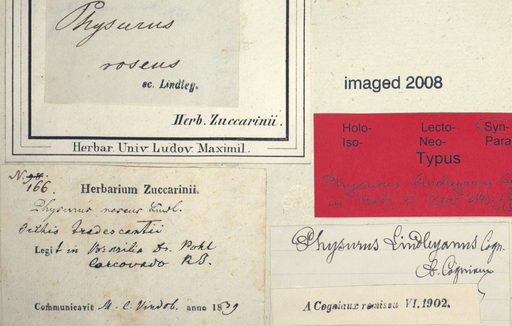 Physurus
roseus
ec. Lindley.
Herb. Zuccarinii.
Herbar. Univ. Ludov. Maximil.
imaged 2008
Holo- Lecto- Syn-
Iso- Neo- Para
Typus
Physurus Lindleyanus
N. 166.
Herbarium Zuccarinii.
Physurus roseus Lindl.
Tradescantii
Legit in Brasilia Dr. Pohl
Corcovado R.J.
Communicavit M. C. Vindob. anno 1839
Physurus Lindleyanus Cogn.
A. Cogniaux
A Cogniaux remissa VI. 1902.